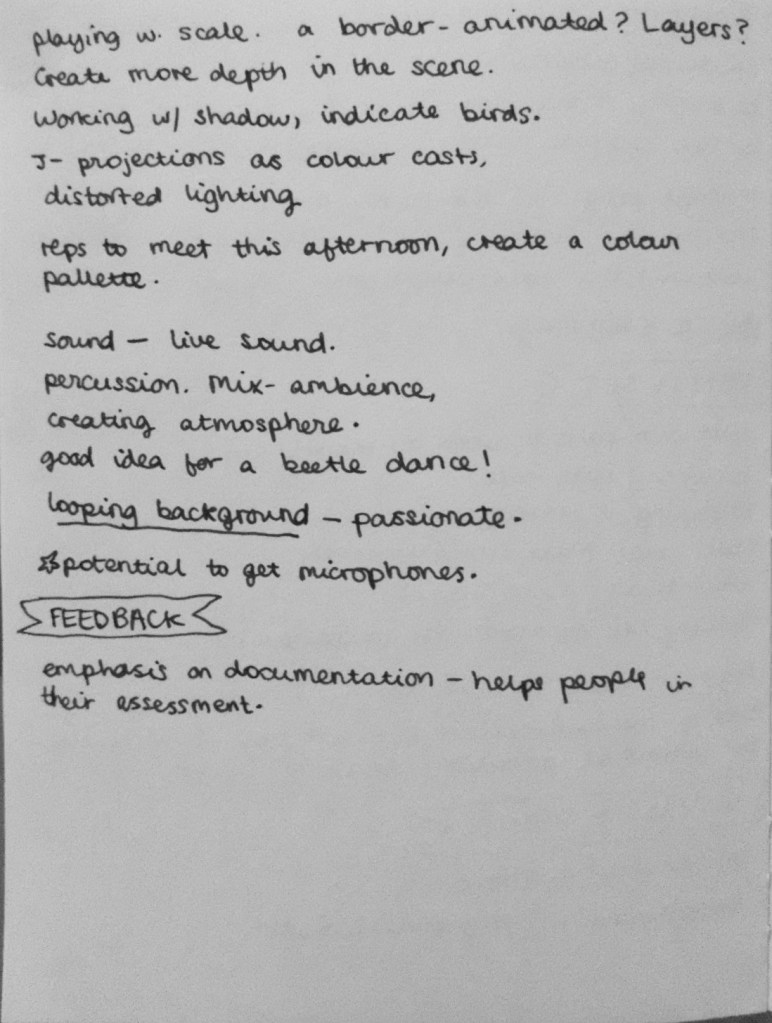 playing w. scale. a border - animated? Layers?
Create more depth in the scene.
Working w/ shadow, indicate birds.
J- projections as colour casts,
distorted lighting
reps to meet this afternoon, create a colour
pallette.
sound - live sound.
percussion. Mix- ambience,
creating atmosphere.
good idea for a beetle dance!
looping background - passionate.
☆potential to get microphones.
FEEDBACK
emphasis on documentation - helps people in
their assessment.